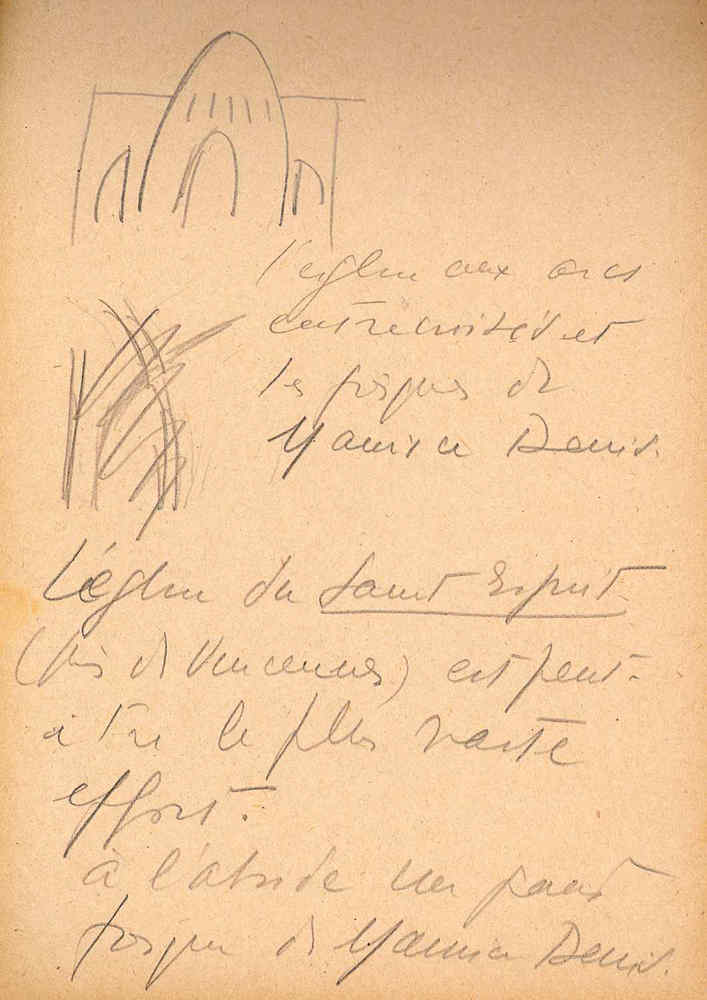 l'église aux arcs
entrecroisés et
les fresques de
Maurice Denis.
L'église du Saint Esprit
(près de Vincennes) est peut-
être le plus vaste
effort.
à l'abside une grande
fresque de Maurice Denis.